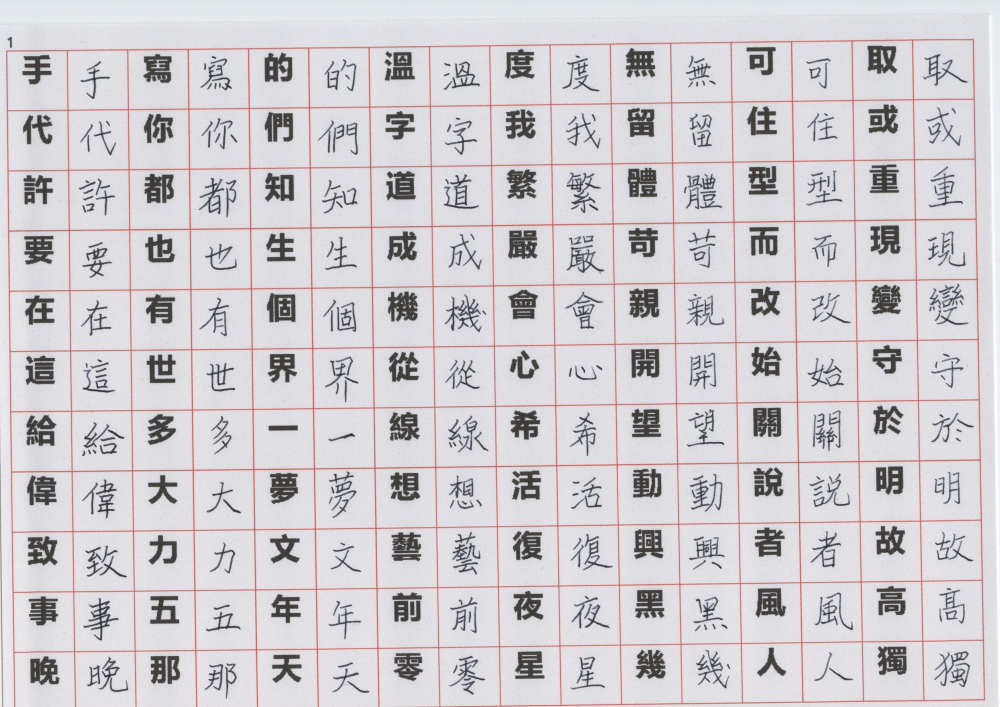 1
手 手 寫 寫 的 的 溫 溫 度 度 無 無 可 可 取 取
代 代 你 你 們 們 字 字 我 我 留 留 住 住 或 或
許 許 都 都 知 知 道 道 繁 繁 體 體 型 型 重 重
要 要 也 也 生 生 成 成 嚴 嚴 苛 苛 而 而 現 現
在 在 有 有 個 個 機 機 會 會 親 親 改 改 變 變
這 這 世 世 界 界 從 從 心 心 開 開 始 始 守 守
給 給 多 多 一 一 線 線 希 希 望 望 關 關 於 於
偉 偉 大 大 夢 夢 想 想 活 活 動 動 說 說 明 明
致 致 力 力 文 文 藝 藝 復 復 興 興 者 者 故 故
事 事 五 五 年 年 前 前 夜 夜 黑 黑 風 風 高 高
晚 晚 那 那 天 天 零 零 星 星 幾 幾 人 人 獨 獨